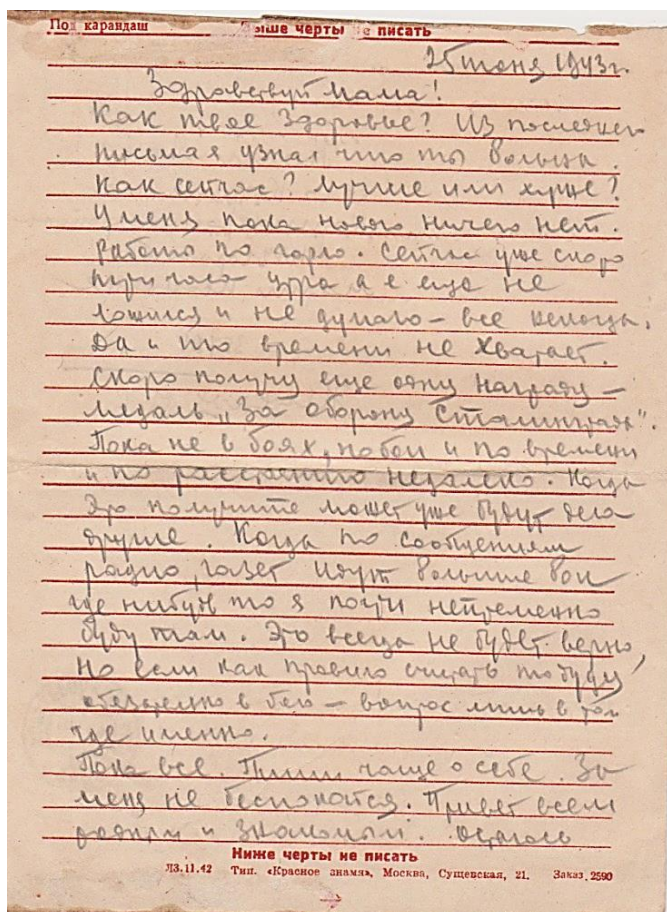 Под карандаш Выше черты не писать
25 июня 1943 г.
Здравствуй мама!
Как твое здоровье? Из последнего
письма я узнал что ты больна.
Как сейчас? Лучше или хуже?
У меня пока нового ничего нет.
Работы по горло. Сейчас уже скоро
часа утра а я еще не
ложился и не думаю – все некогда.
Да и то времени не хватает.
Скоро получу еще одну награду –
медаль „За оборону Сталинграда".
Пока не в боях, но бои и по времени
и по расстоянию недалеко. Когда
это получите может уже будут дела
другие. Когда по сообщениям
радио, газет идут большие бои
где нибудь то я почти непременно
буду там. Это всегда не будет верно,
но если как правило считать то буду
обязательно в бою – вопрос лишь в том
где именно.
Пока все. Пиши чаще о себе. За
меня не беспокойся. Привет всем
родным и знакомым. Остаюсь
Ниже черты не писать
Л3.11.42 Тип. «Красное знамя», Москва, Сущевская, 21. Заказ 2590